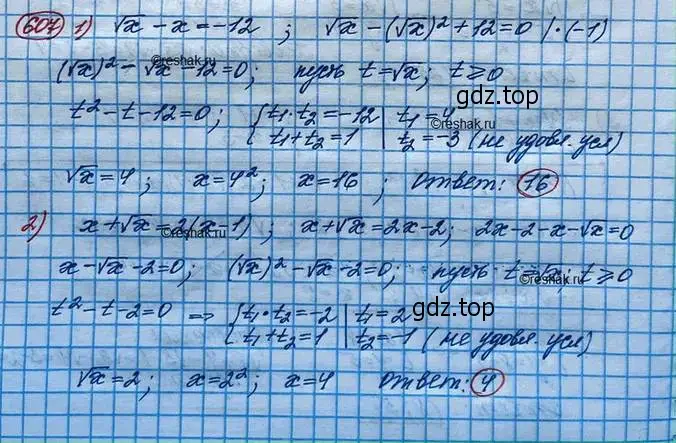 607 1) √x - x = -12 ; √x - (√x)² + 12 = 0 | · (-1)
(√x)² - √x - 12 = 0 ; пусть t = √x ; t ⩾ 0
©reshak.ru
gdz.top
t² - t - 12 = 0 ; { t₁ · t₂ = -12 | t₁ = 4
t₁ + t₂ = 1 | t₂ = -3 (не удовл. усл)
©reshak.ru
√x = 4 ; x = 4² ; x = 16 ; Ответ: 16
2) x + √x = 2(x - 1) ; x + √x = 2x - 2 ; 2x - 2 - x - √x = 0
©reshak.ru
x - √x - 2 = 0 ; (√x)² - √x - 2 = 0 ; пусть t = √x ; t ⩾ 0
©reshak.ru
t² - t - 2 = 0 ⇒ { t₁ · t₂ = -2 | t₁ = 2
gdz.top
t₁ + t₂ = 1 | t₂ = -1 (не удовл. усл)
√x = 2 ; x = 2² ; x = 4 Ответ: 4